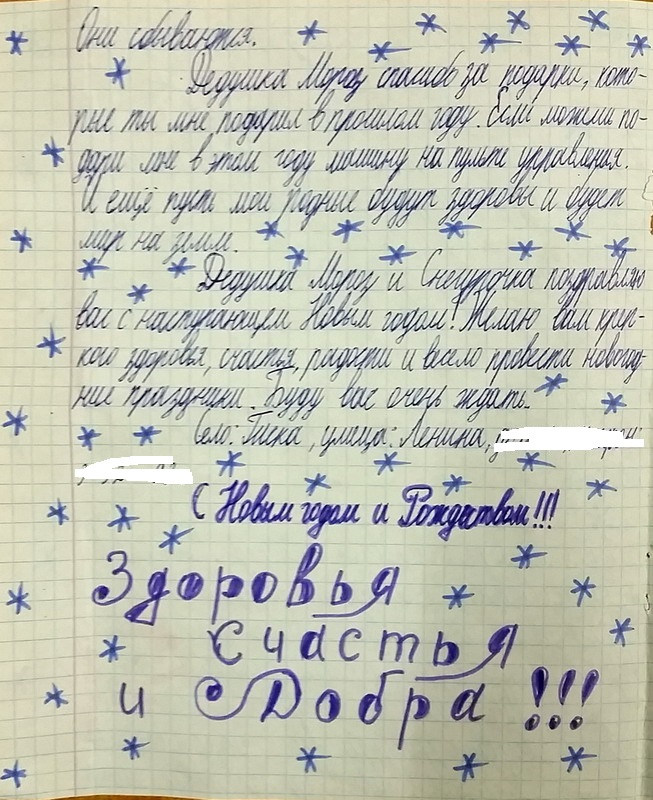 Они сбываются.
Дедушка Мороз спасибо за подарки, кото-
рые ты мне подарил в прошлом году. Если можеш по-
дари мне в этом году машину на пульте управления.
И ещё пусть мои родные будут здоровы и будет
мир на земли.
Дедушка Мороз и Снегурочка поздравляю
вас с наступающем Новым годом! Желаю вам креп-
кого здоровья, счастья, радости и весело провести новогод-
ние праздники. Буду вас очень ждать.
Село: Гиска, улица: Ленина,
С Новым годом и Рождеством!!!
Здоровья
Счастья
и Добра!!!